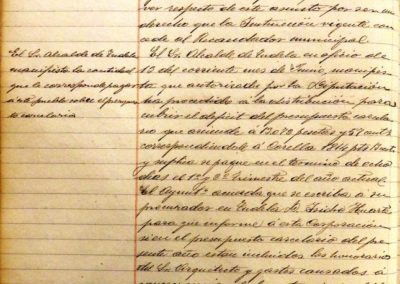 ver respecto de este asunto por ser un
derecho que la Instruccion vigente con-
cede al Recaudador municipal.
El Sr. Alcalde de Tudela
manifiesta la cantidad
que le corresponde pagar
á este pueblo sobre el presupto
carcelario
El Sr. Alcalde de Tudela en oficio de
13 del corriente mes de Junio, manifies-
ta que autorizado por la Diputación
ha procedido á la distribucion para
cubrir el deficit del presupuesto carcela-
rio que asciende á 13.092 pesetas y 58 cents
correspondiendole á Corella 1814 pts
y suplica se pague en el termino de ocho
dias el 1º y 2º trimestre del año actual.
El Ayuntº acuerda que se escriba á su
procurador en Tudela Huarte
para que informe á esta Corporacion
si en el presupuesto carcelario del pre-
sente año estan incluidos los honorarios
del Sr. Arquitecto y gastos causados á